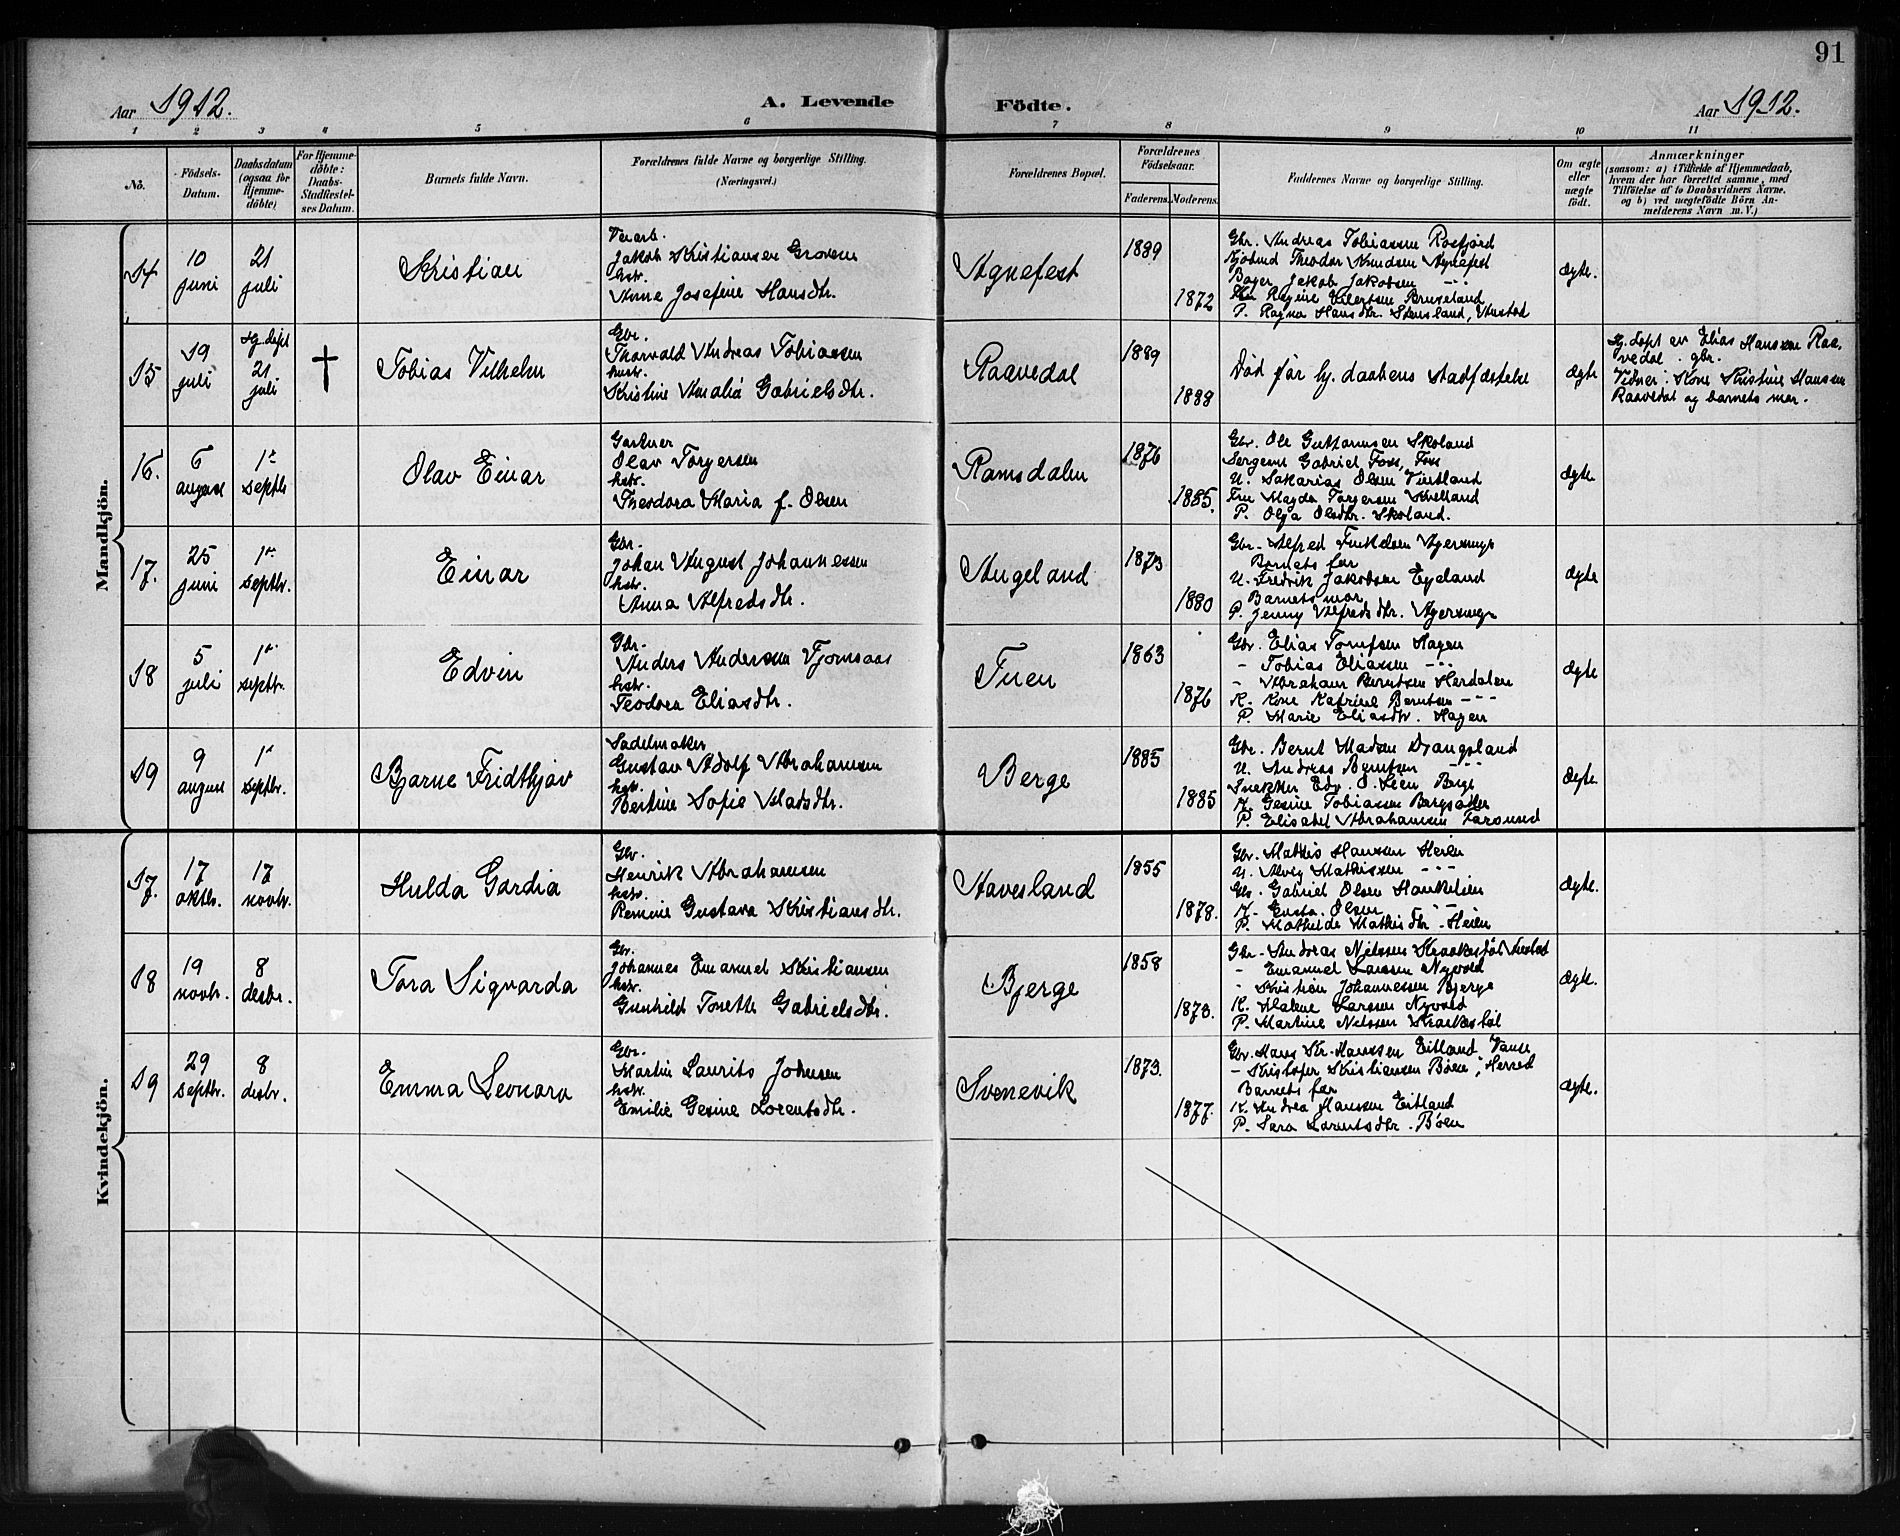 91
Aar 1912.
A. Levende
Födte.
Aar 1912.
1 2 3 4 5 6 7 8 9 10 11
No.
Födsels-Datum.
Daabsdatum (ogsaa for Hjemme-döbte)
For Hjemme-döbte: Daabs-Stadfæstel-ses Datum.
Barnets fulde Navn.
Forældrenes fulde Navne og borgerlige Stilling.
(Næringsvei.)
Forældrenes Bopæl.
Forældrenes Födselsaar.
Faderens. Moderens.
Faddernes Navne og borgerlige Stilling.
Om ægte eller uægte födt.
Anmærkninger
(saasom: a) i Tilfælde af Hjemmedaab,
hvem der har forrettet samme, med
Tilföielse af to Daabsvidners Navne.
og b) ved uægtefödte Börn An-
melderens Navn m. V.)
Mandkjön.
14
10 juni
21 juli
Kristian
Jakob Kristiansen Groven
hstr.
Anne Josefine Hansdtr.
Agnefest
1889
1872
Gbr. Andreas Tobiassen Rosfjord
Theodor Knudsen Agnefest
Jakob Jakobsen -"-
P. Ragna Hansdtr. Stensland,
ægte.
15
19 juli
hj. døpt 21 juli
†
Tobias Vilhelm
Gbr.
Thorvald Andreas Tobiassen
hustr.
Kristine Amalia Gabrielsdtr.
Raavedal
1889
1888
Død før hj. daabens stadfæstelse
ægte
Hj. døpt av Elias Hanssen Raa-
vedal. gbr.
Vidner: Kone Kristine Hanssen
Raavedal og barnets mor.
16.
6 august
1ste septbr
Olav Einar
Gartner
Olav Torgersen
hstr.
Theodora Maria f. Olsen
Ramsdalen
1876
1885.
Gbr. Ole Guttormsen Skoland
Sergeant Gabriel Foss, Foss
U. Sakarias Olsen
Fru Magda Torgersen
P. Olga Olsdtr. Skoland.
ægte.
17.
25 juni
1ste septbr.
Einar
Gbr.
Johan August Johannessen
hstr.
Anna Alfredsdtr.
Augeland
1873
1880
Gbr. Alfred
Barnets far
U. Fredrik Jakobsen Egeland
Barnets mor
P. Jenny Alfredsdtr.
ægte
18
5 juli
1ste septbr.
Edvin
Gbr.
Anders Andersen Fjomsaas
hstr.
Teodora Eliasdtr.
Tuen
1863
1876
Gbr. Elias Tomsen Hagen
- Tobias Eliassen -"-
- Abraham Berntsen Herdalen
K. Kone Katrine Berntsen -"-
P. Marie Eliasdtr. Hagen
ægte
19
9 august
1ste septbr.
Bjarne Fridthjov
Sadelmaker
Gustav Adolf Abrahamsen
hstr.
Bertine Sofie Madsdtr.
Berge
1885
1885
Gbr. Bernt Madsen Drangsland
U. Andreas Berntsen -"-
Snekker Edv. O. Lien Berge
K. Gesine Tobiassen
P. Elisabet Abrahamsen Farsund
Ægte.
Kvindekjön.
17.
17 oktbr.
17 novbr.
Hulda Gardia
Gbr.
Henrik Abrahamsen
hstr.
Remine Gustava Kristiansdtr.
Havesland
1855
1878.
Gbr. Mathis Hanssen Heien
U. Alvig Mathissen -"-
Gbr. Gabriel Olsen
K. Gusta Olsen -"-
P. Mathilde Mathisdtr. Heien
Ægte.
18
19 novbr.
8 desbr.
Tora Sigvarda
Gbr.
Johannes Emanuel Kristiansen
hstr.
Gunhild Tonette Gabrielsdtr.
Bjerge
1858
1873.
Gbr. Andreas Nilssen
- Emanuel Larssen Nyvold
- Kristian Johannessen Bjerge
K. Malene Larssen Nyvold
P. Martine Nilssen
Ægte.
19
29 septbr.
8 desbr.
Emma Leonora
Gbr.
Martin Laurits Johnsen
hstr.
Emilie Gesine Lorentsdtr.
Svenevik
1873.
1877.
Gbr. Hans Kr. Hanssen Eitland, Vanse
- Kristofer Kristiansen Bøen, Herred
Barnets far
K. Andrea Hanssen Eitland
P. Sara Lorentsdtr. Bøen
Ægte.